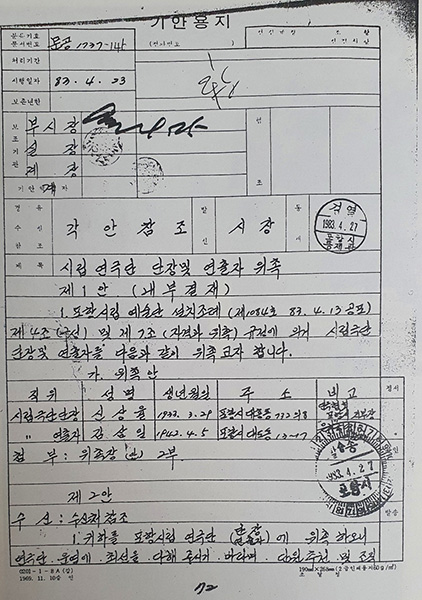 기안용지
분류기호
문서번호 문공 1737-14
(전화번호 )
처리기간
시행일자 83. 4. 23
보존년한
보조기관
부시장
실장
계장
기안
경유
수신
참조
각안참조
발신
시장
검열
1983. 4. 27
제목 시립연극단 단장및 연출자 위촉
제1안 (내부결재)
1. 포항시립 예술단 설치조례 (제1084호 83. 4. 13 공포)
제4조 및 제7조 (자격과 위촉) 규정에 의거 시립극단
단장및 연출자를 다음과 같이 위촉코자 합니다.
가. 위촉안
직위 성명 생년월일 주소 비고
시립극단단장 신상률 1933. 3. 29
〃 연출자 김삼일 1942. 4. 5 포항시 대도동
첨부 : 위촉장 (안) 2부.
1983. 4. 27
포항시
제2안
수신 : 수신처참조
1. 귀하를 포항시립 연극단 단장 에 위촉 하오니
연극단 운영에 최선을 다해 주시기 바라며 단원 및 조직
0201-1-8A (갑)
1969. 11. 10 승인
190mm×268mm
조달청
72